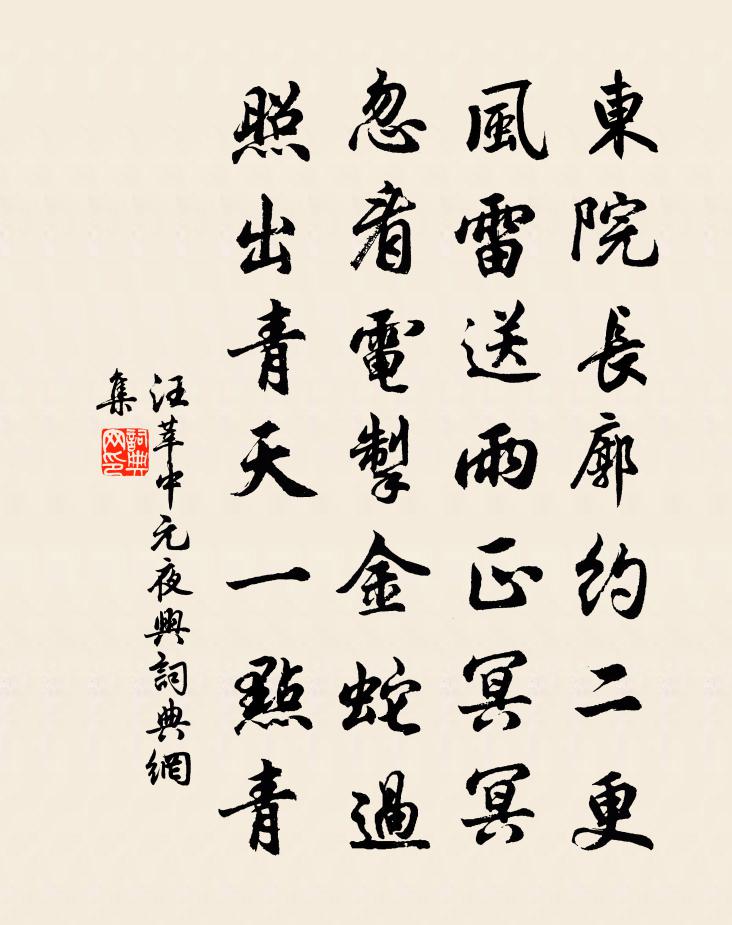 東院長廓約二更
風雷送雨正冥冥
忽看電掣金蛇過
照出青天一點青
汪莘中元夜興詞典網
集
詞典
网印